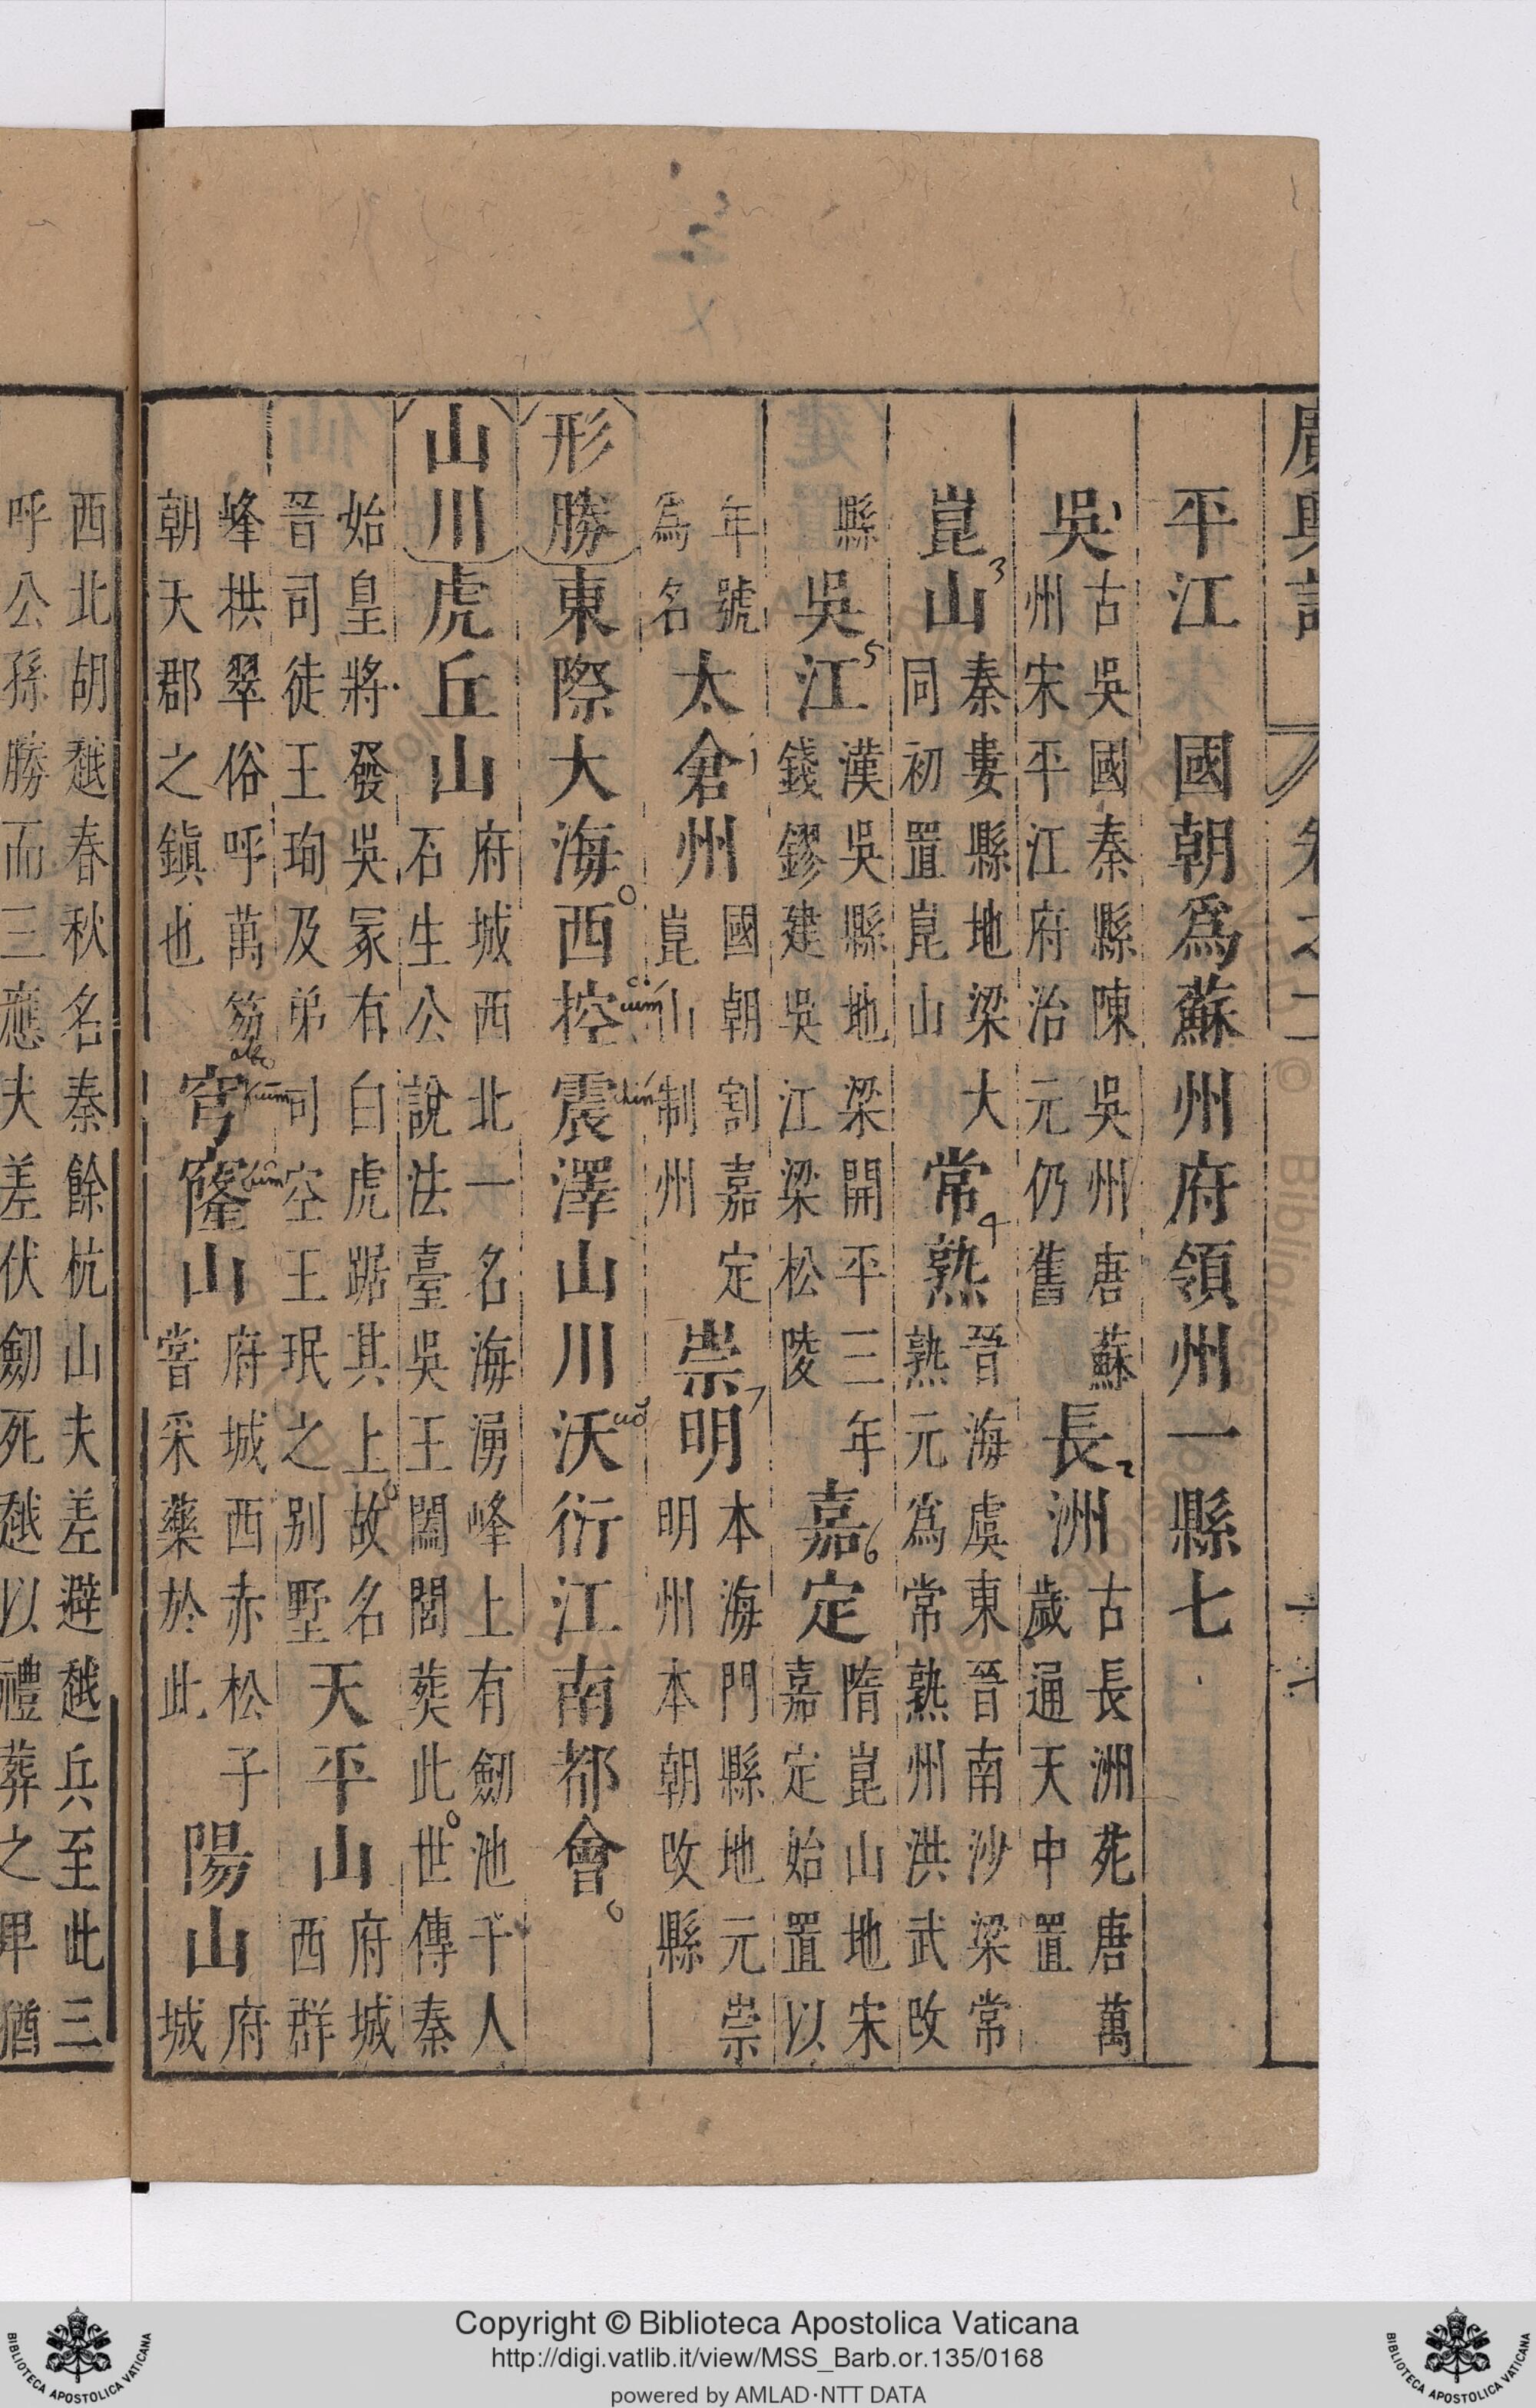 平江 國朝爲蘇州府領州一縣七
吳 古吳國秦縣陳吳州唐蘇
州宋平江府治元仍舊 長洲 古長洲苑唐萬
歲通天中置
崑山 秦婁縣地梁大
同初置崑山 常熟 晉海虞東晉南沙梁常
熟元爲常熟州洪武改
縣 吳江 漢吳縣地梁開平三年
錢鏐建吳江梁松陵 嘉定 隋崑山地宋
嘉定始置以
年號
爲名 太倉州 國朝割嘉定
崑山制州 崇明 本海門縣地元崇
明州本朝改縣
形勝 東際大海西控震澤山川沃衍江南都會
山川 虎丘山 府城西北一名海湧峰上有劒池千人
石生公說法臺吳王闔閭葬此世傳秦
始皇將發吳冢有白虎踞其上故名
晉司徒王珣及弟司空王珉之别墅 天平山 府城
西群
峰拱翠俗呼萬笏
朝天郡之鎭也 穹窿山 府城西赤松子
嘗采藥於此 陽山 府
城
西北胡越春秋名秦餘杭山夫差避越兵至此三
呼公孫勝而三應夫差伏劒死越以禮葬之卑猶
cum
chin
uo
kium
lum
1
2
3
4
5
6
7
Copyright © Biblioteca Apostolica Vaticana
http://digi.vatlib.it/view/MSS_Barb.or.135/0168
powered by AMLAD·NTT DATA
BIBLIOTECA APOSTOLICA VATICANA
BIBLIOTECA APOSTOLICA VATICANA